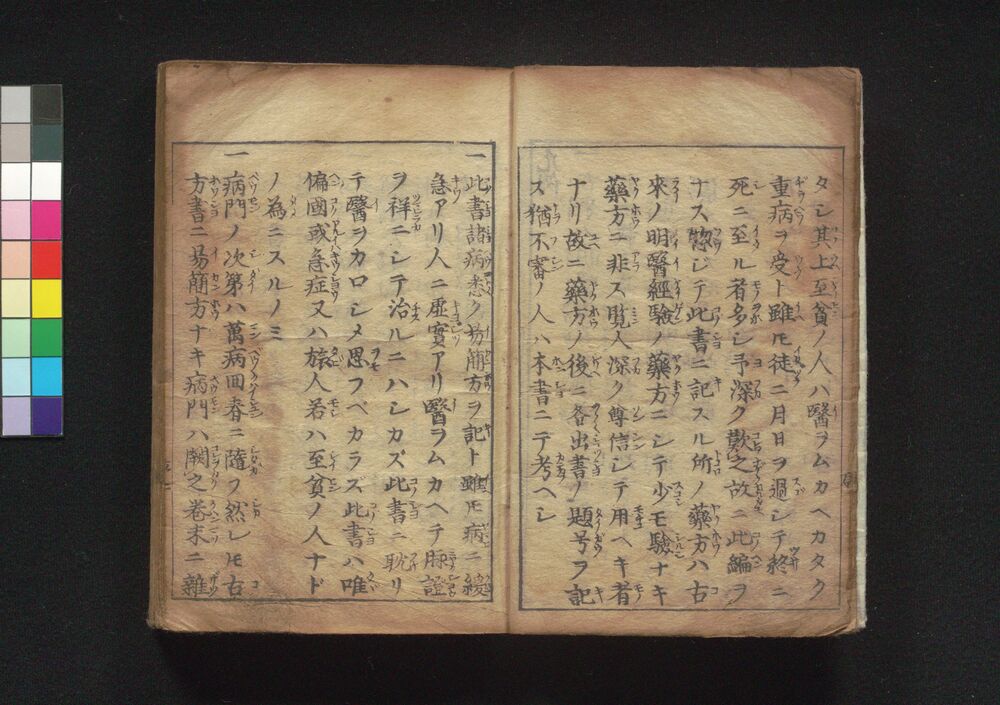 タシ其上至貧ノ人ハ醫ヲムカヘカタク
重病ヲ受ト雖モ徒ニ月日ヲ過シテ終ニ
死ニ至ル者多シ予深ク歎之故ニ此編ヲ
ナス惣ジテ此書ニ記スル所ノ藥方ハ古
來ノ明醫經驗ノ藥方ニシテ少モ驗ナキ
藥方ニ非ス覽人深ク尊信シテ用ヘキ者
ナリ故ニ藥方ノ後ニ各出書ノ題号ヲ記
ス猶不審ノ人ハ本書ニテ考ヘシ
一此書諸病悉ク易簡方ヲ記ト雖モ病ニ緩
急アリ人ニ虛實アリ醫ヲムカヘテ脉證
ヲ祥ニシテ治ルニハシカズ此書ニ耽リ
テ醫ヲカロシメ思フベカラズ此書ハ唯
偏國或急症又ハ旅人若ハ至貧ノ人ナド
ノ為ニスルノミ
一病門ノ次第ハ萬病回春ニ隨フ然レモ古
方書ニ易簡方ナキ病門ハ闕之卷末ニ雜